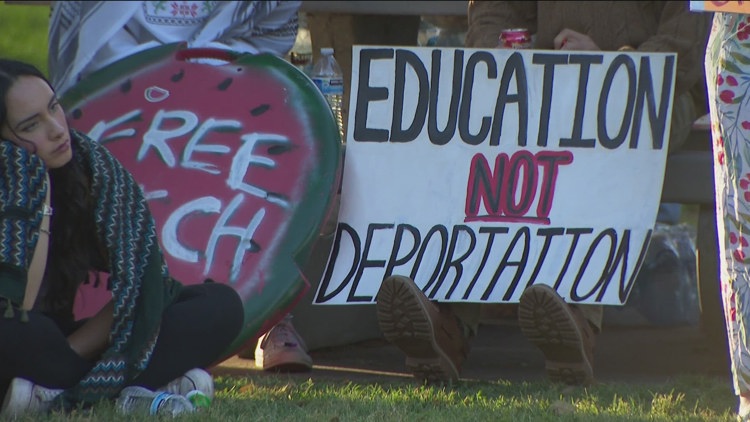 FREE
EDUCATION
NOT
DEPORTATION